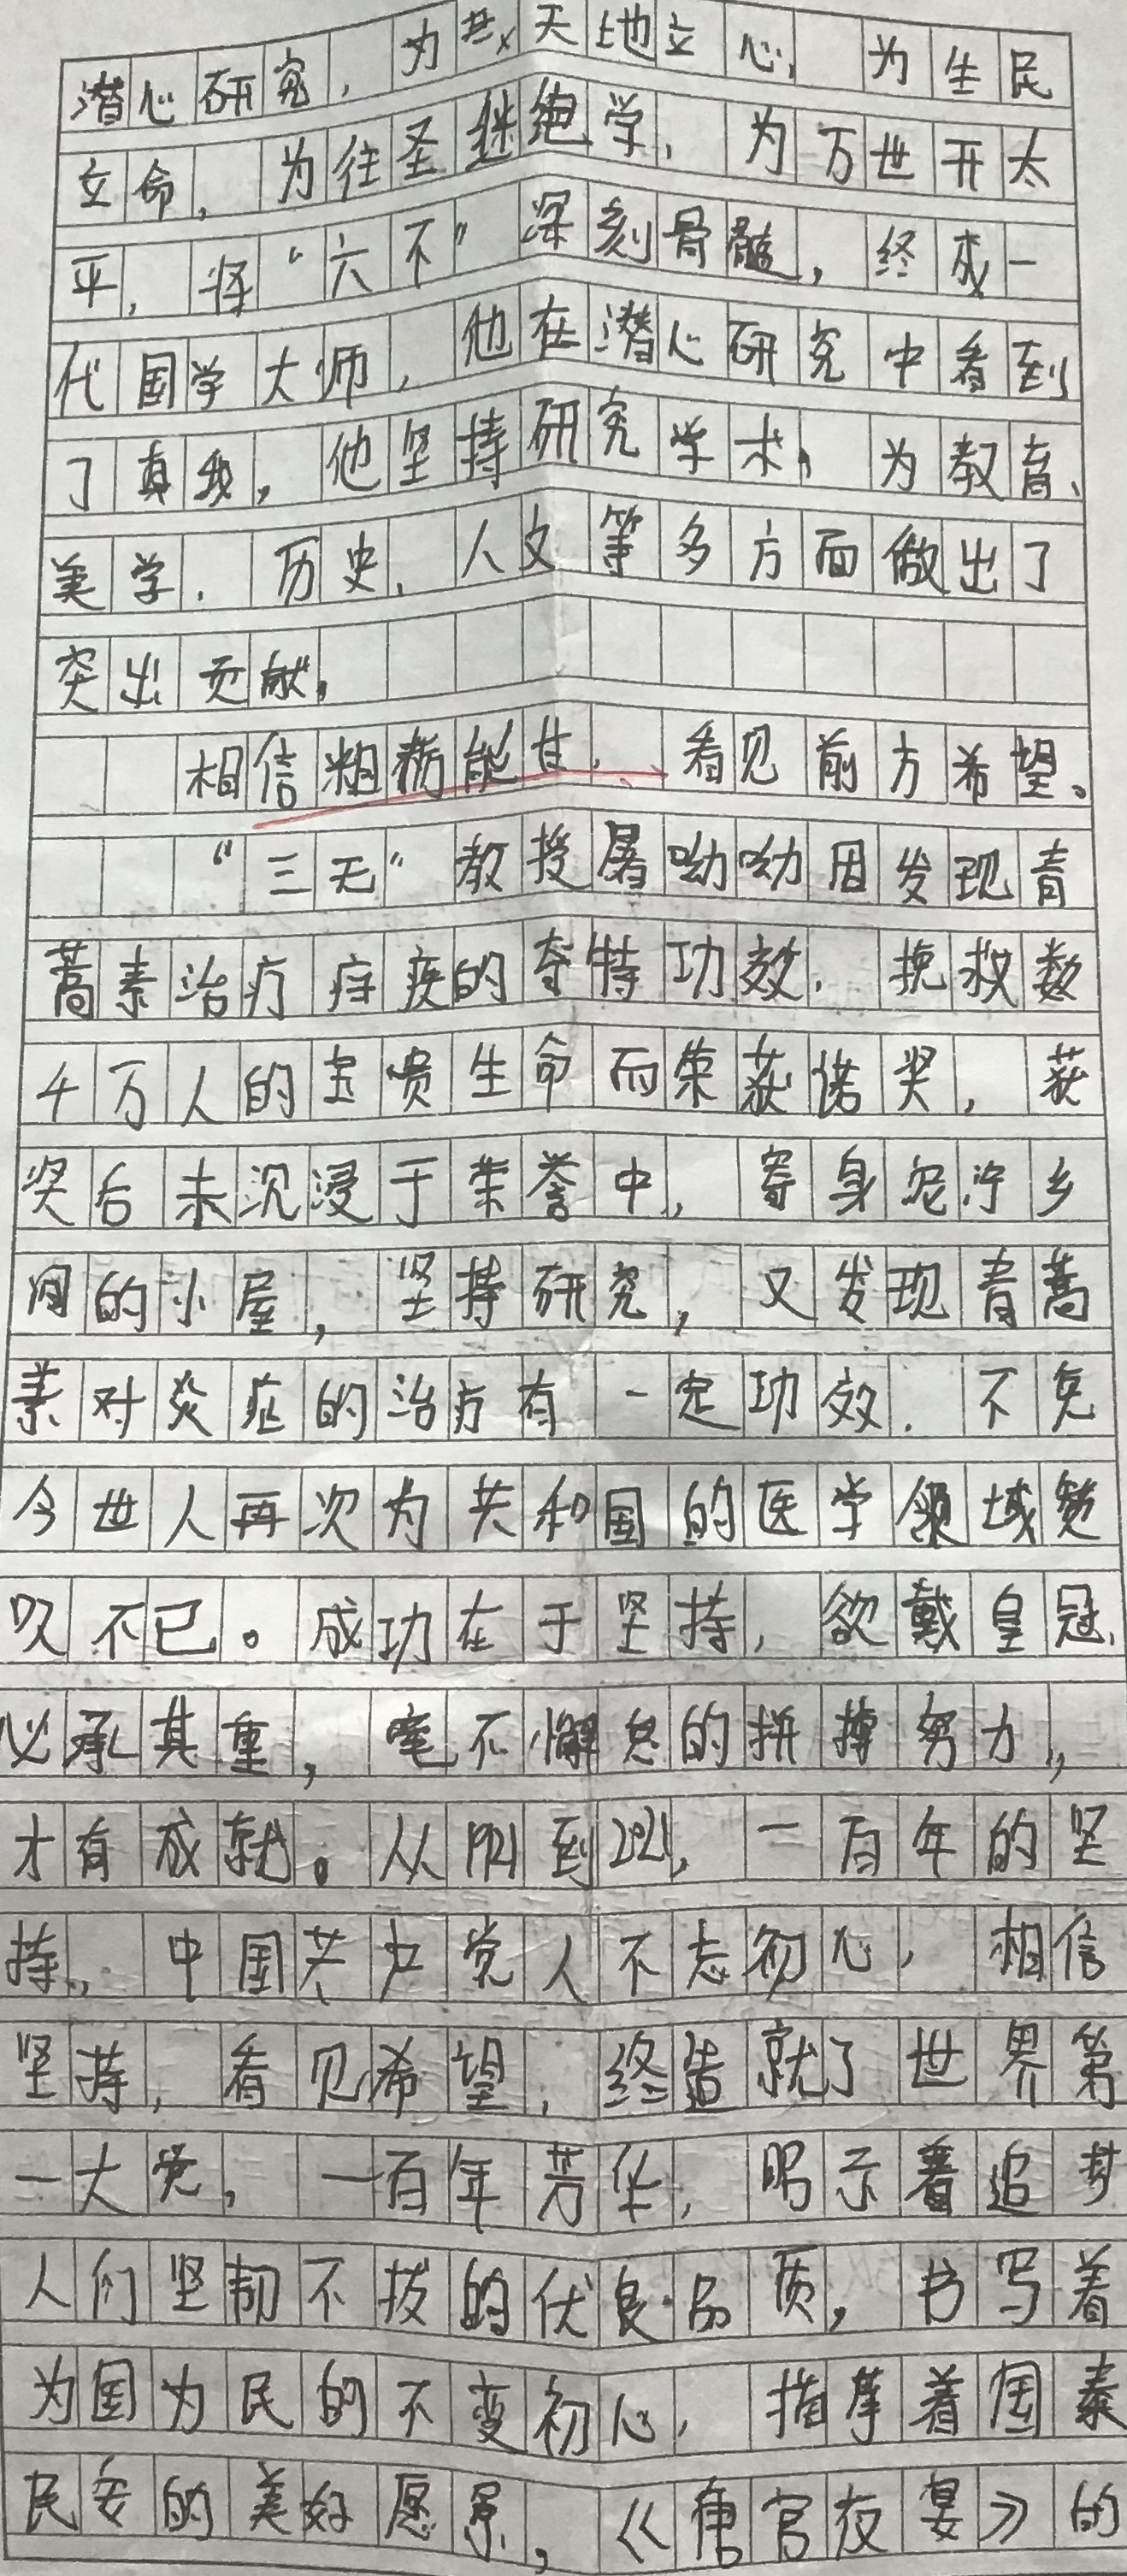 潜心研究，为天地立心，为生民
立命，为往圣继绝学，为万世开太
平，将“六不”深刻骨髓，终成一
代国学大师，他在潜心研究中看到
了真我，他坚持研究学术，为教育、
美学、历史、人文等多方面做出了
突出贡献。
相信粗粝能甘，看见前方希望。
“三无”教授屠呦呦因发现青
蒿素治疗疟疾的奇特功效，挽救数
千万人的宝贵生命而荣获诺奖，获
奖后未沉浸于荣誉中，寄身泥泞乡
间的小屋，坚持研究，又发现青蒿
素对炎症的治疗有一定功效，不免
令世人再次为共和国的医学领域赞
叹不已。成功在于坚持，欲戴皇冠，
必承其重，毫不懈怠的拼搏努力，
才有成就。从1921到2021，一百年的坚
持，中国共产党人不忘初心，相信
坚持，看见希望，终造就了世界第
一大党，一百年芳华，昭示着追梦
人们坚韧不拔的优良品质，书写着
为国为民的不变初心，描摹着国泰
民安的美好愿景，《唐宫夜宴》的